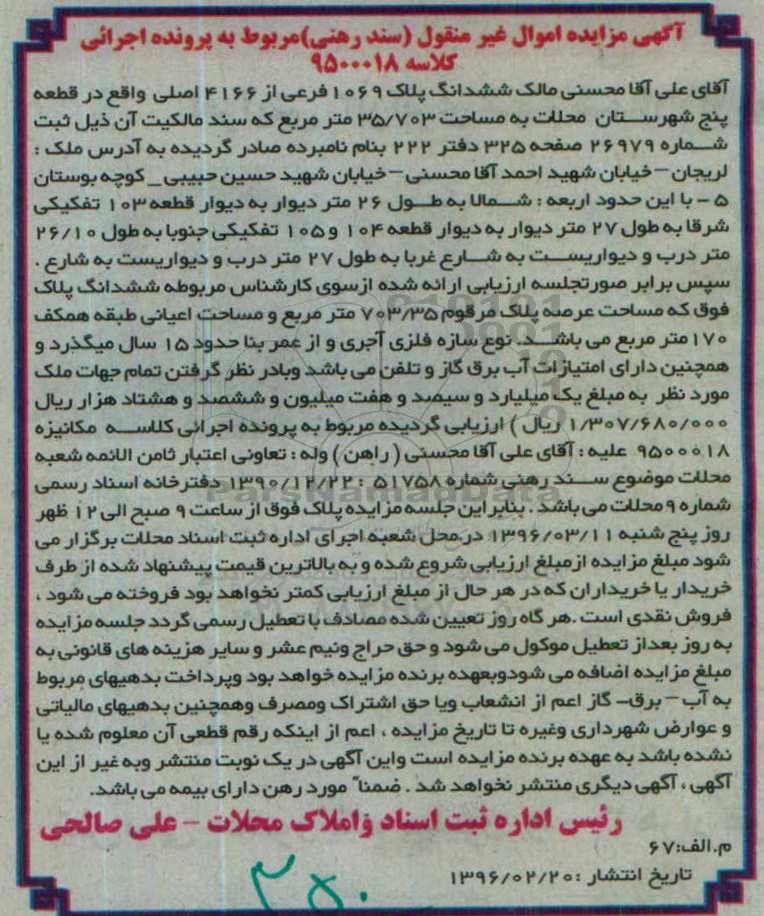 آگهی مزایده اموال غیر منقول (سند رهنی)مربوط به پرونده اجرائی
کلاسه ۹۵۰۰۰۱۸
آقای علی آقا محسنی مالک ششدانگ پلاک ۱۰۶۹ فرعی از ۴۱۶۶ اصلی واقع در قطعه
پنج شهرستان محلات به مساحت ۳۵/۷۰۳ متر مربع که سند مالکیت آن ذیل ثبت
شماره ۲۶۹۷۹ صفحه ۳۲۵ دفتر ۲۲۲ بنام نامبرده صادر گردیده به آدرس ملک :
لریجان – خیابان شهید احمد آقا محسنی – خیابان شهید حسین حبیبی _ کوچه بوستان
۵ - با این حدود اربعه : شمالا به طول ۲۶ متر دیوار به دیوار قطعه ۱۰۳ تفکیکی
شرقا به طول ۲۷ متر دیوار به دیوار قطعه ۱۰۴ و ۱۰۵ تفکیکی جنوبا به طول ۲۶/۱۰
متر درب و دیواریست به شارع غربا به طول ۲۷ متر درب و دیواریست به شارع .
سپس برابر صورتجلسه ارزیابی ارائه شده ازسوی کارشناس مربوطه ششدانگ پلاک
فوق که مساحت عرصه پلاک مرقوم ۷۰۳/۳۵ متر مربع و مساحت اعیانی طبقه همکف
۱۷۰ متر مربع می باشد. نوع سازه فلزی آجری و از عمر بنا حدود ۱۵ سال میگذرد و
همچنین دارای امتیازات آب برق گاز و تلفن می باشد وبادر نظر گرفتن تمام جهات ملک
مورد نظر به مبلغ یک میلیارد و سیصد و هفت میلیون و ششصد و هشتاد هزار ریال
۱/۳۰۷/۶۸۰/۰۰۰ ریال ) ارزیابی گردیده مربوط به پرونده اجرائی کلاسه مکانیزه
۹۵۰۰۰۱۸ علیه : آقای علی آقا محسنی ( راهن ) وله : تعاونی اعتبار ثامن الائمه شعبه
محلات موضوع سند رهنی شماره ۵۱۷۵۸ : ۱۳۹۰/۱۲/۲۲ دفترخانه اسناد رسمی
شماره ۹ محلات می باشد . بنابر این جلسه مزایده پلاک فوق از ساعت ۹ صبح الی ۱۲ ظهر
روز پنج شنبه ۱۳۹۶/۰۳/۱۱ در محل شعبه اجرای اداره ثبت اسناد محلات برگزار می
شود مبلغ مزایده ازمبلغ ارزیابی شروع شده و به بالاترین قیمت پیشنهاد شده از طرف
خریدار یا خریداران که در هر حال از مبلغ ارزیابی کمتر نخواهد بود فروخته می شود ،
فروش نقدی است .هر گاه روز تعیین شده مصادف با تعطیل رسمی گردد جلسه مزایده
به روز بعداز تعطیل موکول می شود و حق حراج ونیم عشر و سایر هزینه های قانونی به
مبلغ مزایده اضافه می شودوبعهده برنده مزایده خواهد بود وپرداخت بدهیهای مربوط
به آب – برق- گاز اعم از انشعاب ویا حق اشتراک ومصرف وهمچنین بدهیهای مالیاتی
و عوارض شهرداری وغیره تا تاریخ مزایده ، اعم از اینکه رقم قطعی آن معلوم شده یا
نشده باشد به عهده برنده مزایده است واین آگهی در یک نوبت منتشر وبه غیر از این
آگهی ، آگهی دیگری منتشر نخواهد شد . ضمنا" مورد رهن دارای بیمه می باشد.
رئیس اداره ثبت اسناد واملاک محلات - علی صالحی
م.الف:۶۷
تاریخ انتشار :۱۳۹۶/۰۲/۲۰
ParsNamadData